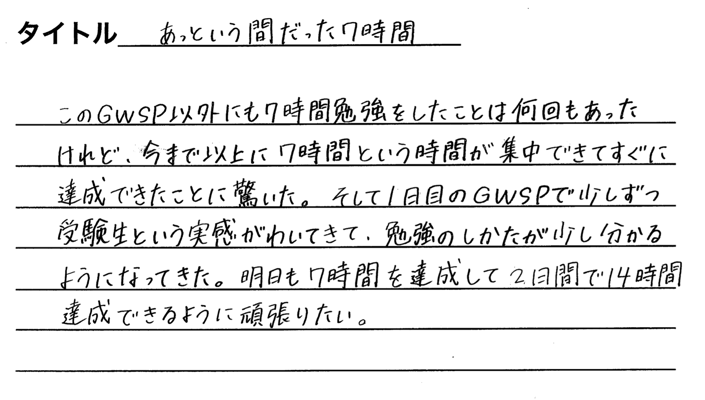 タイトル あっという間だった7時間
このGWSP以外にも7時間勉強をしたことは何回もあった
けれど、今まで以上に7時間という時間が集中できてすぐに
達成できたことに驚いた。そして1日目のGWSPで少しずつ
受験生という実感がわいてきて、勉強のしかたが少し分かる
ようになってきた。明日も7時間を達成して2日間で14時間
達成できるように頑張りたい。